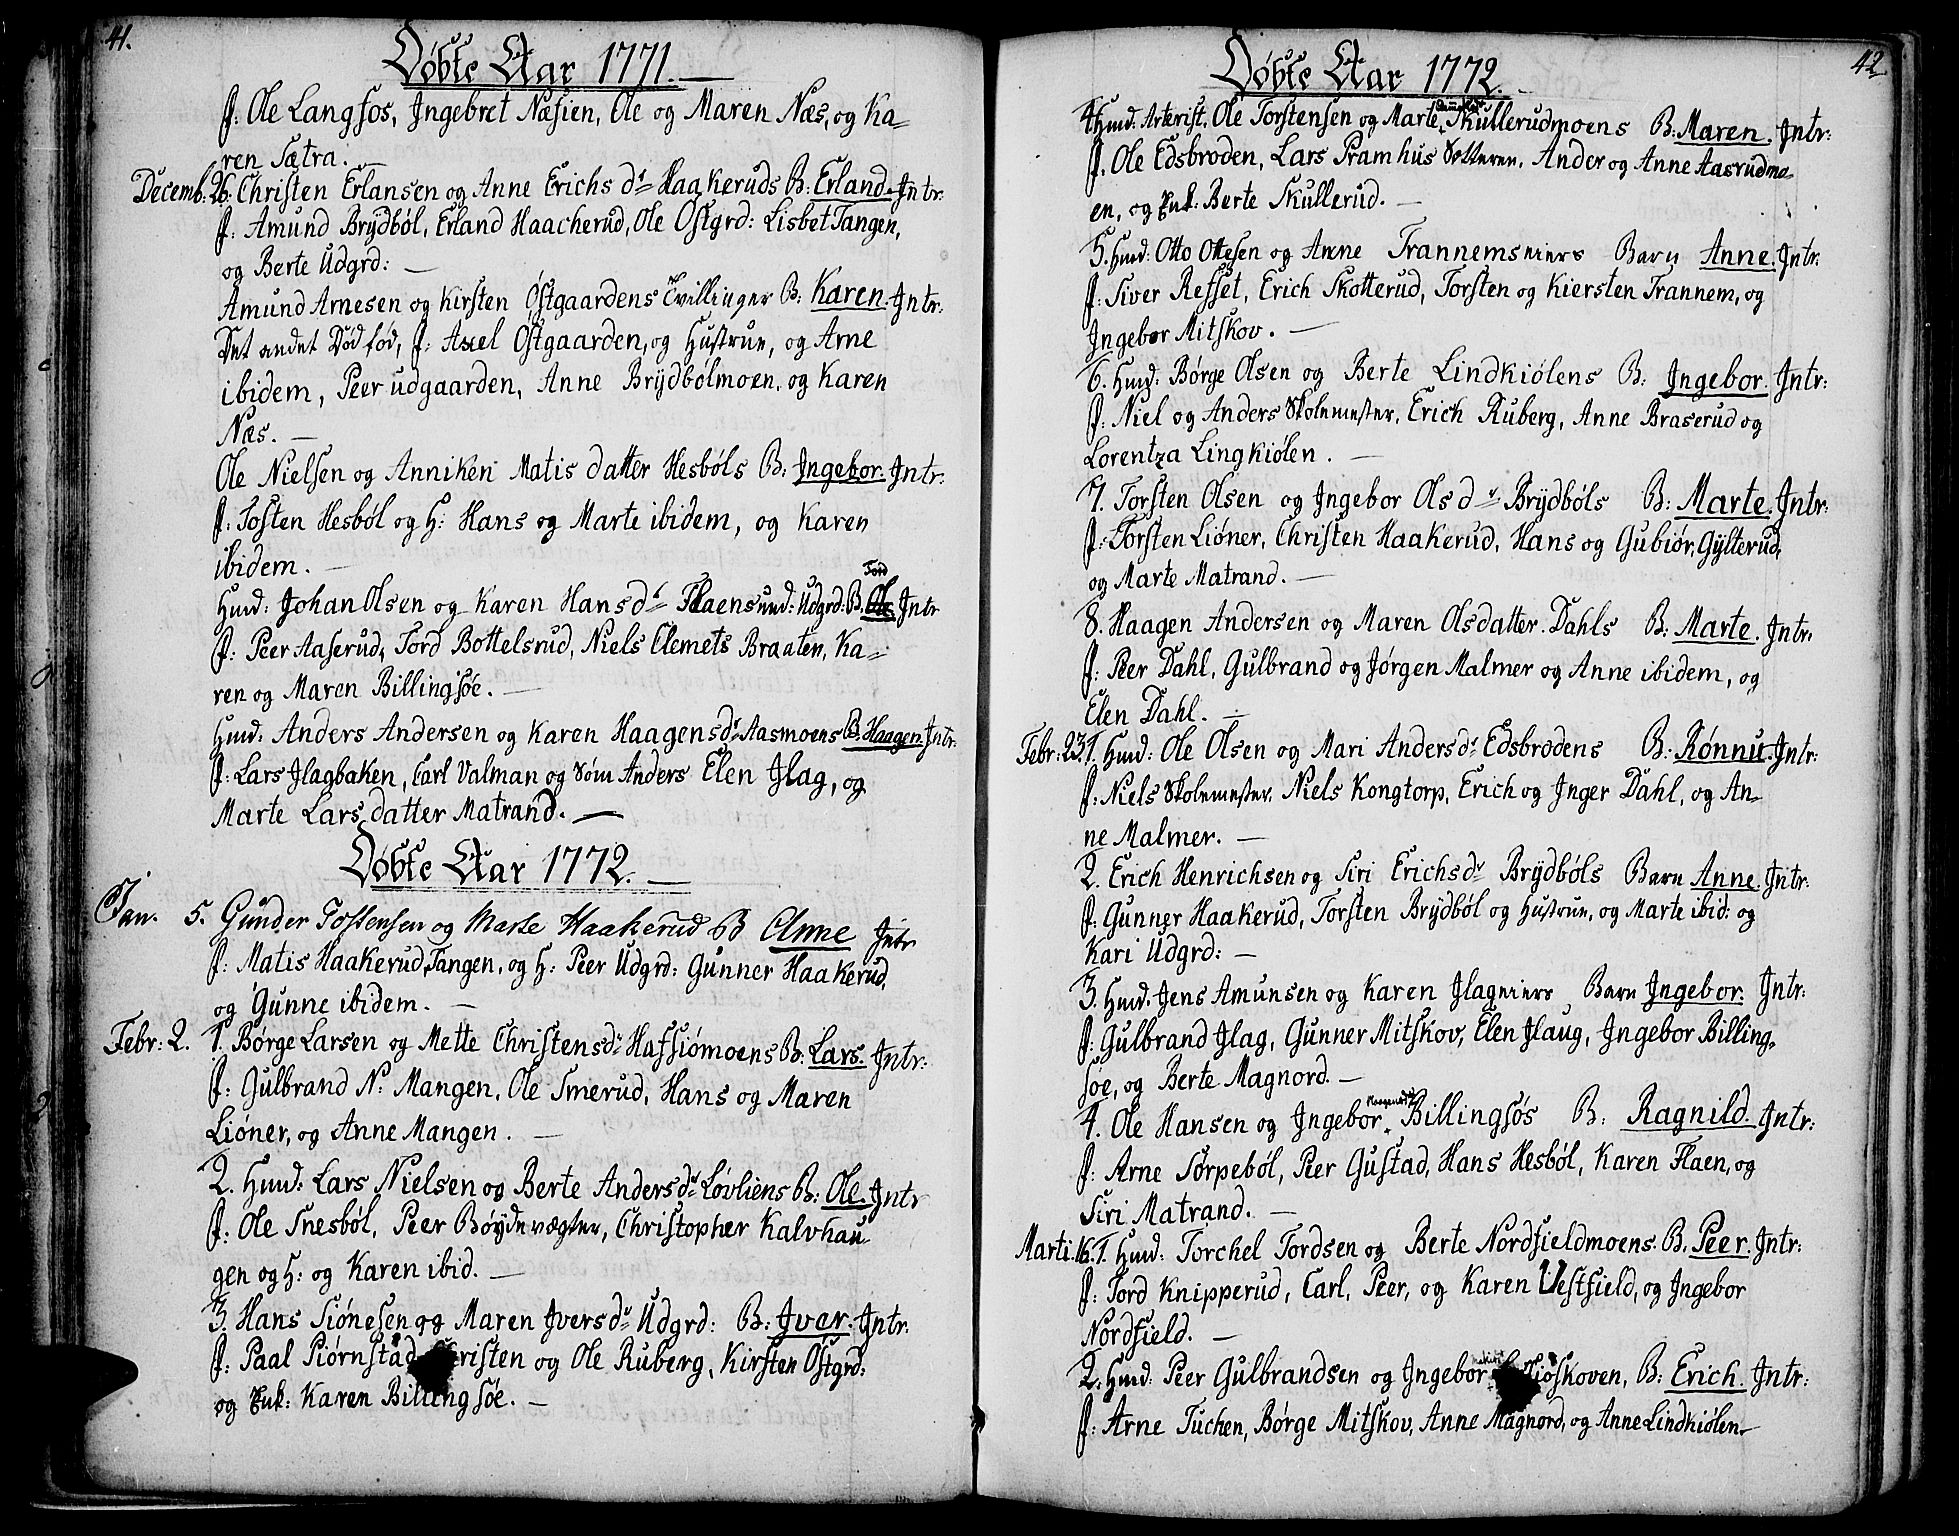 41.
Døbte Aar 1771. —
F: Ole Langsos, Ingebret Næsien, Ole og Maren Næs, og Ka=
ren Sætra. —
Decemb: 26. Christen Erlansen og Anne Erichs dr Haakeruds B: Erland. Intr:
F: Amund Brÿdbøl, Erland Haacherud, Ole Ostgrd: Lisbet Tangen,
og Berte Udgrd: —
Amund Arnesen og Kirsten Østgaardens Tvillinger B: Karen. Intr:
Det andet Død fød, F: Axel Østgaarden, og Hustrue, og Arne
ibidem, Peer udgaarden, Anne Brÿdbølmoen, og Karen
Næs. —
Ole Nielsen og Anniken Matis datter Hesbøls B: Ingebor. Intr:
F: Tosten Hesbøl og H: Hans og Marte ibidem, og Karen
ibidem. —
Tord
Hmd: Johan Olsen og Karen Hans dr Flaens und: Udgrd: B. Ole Intr
F: Peer Aaserud, Tord Bottelsrud, Niels Clemets Braaten, Ka=
ren og Maren Billingsøe. —
Hmd: Anders Andersen og Karen Haagens dr Aasmoens B: Haagen. Intr:
F: Lars Ilagbaken, Carl Valman og Søm Anders Elen Ilag, og
Marte Lars datter Matrand. —
Døbte Aar 1772. —
Jan. 5. Gunder Tostensen og Marte Haakerud B Anne Intr
F: Matis Haakerud, Tangen, og H: Peer Udgrd: Gunner Haakerud,
og Gunne ibidem. —
Febr: 2. 1. Børge Larsen og Mette Christens dr Hafsiømoens B: Lars. Intr:
F: Gulbrand N: Mangen, Ole Smerud, Hans og Maren
Liøner, og Anne Mangen. —
2. Hmd: Lars Nielsen og Berte Anders dr Løvliens B: Ole. Intr
F: Ole Snesbøl, Peer Bøydevægter, Christopher Kalvhau=
gen og H: og Karen ibid. —
3. Hans Siønesen og Maren Ivers dr Udgrd: B: Ivar. Intr:
F: Paal Piørnstad, Christen og Ole Ruberg, Kirsten Østgrd:
og Enk: Karen Billingsøe. —
42
Døbte Aar 1772.
4. Hmd: Arterist. Ole Torstensen og Marte Skullerudmoens B: Maren. Intr:
F. Ole Edsbroden, Lars Pramhus Sætteren, Ander og Anne Aasrudmo=
en, og Enk: Berte Skullerud. —
5. Hmd: Otto Ottesen og Anne Trannemseiers Barn Anne. Intr.
F: Siver Refset, Erich Skotterud, Torsten og Kiersten Trannem, og
Ingebor Mitskov. —
6. Hmd: Børge Olsen og Berte Lindkiølens B: Ingebor. Intr:
F: Niel og Anders Skolemester, Erich Ruberg, Anne Braserud og
Lorentza Lingkiølen. —
7. Torsten Olsen og Ingebor Ols dr Brÿdbøls B: Marte. Intr:
F: Torsten Liøner, Christen Haakerud, Hans og Gubiør, Gylterud,
og Marte Matrand. —
8. Haagen Andersen og Maren Olsdatter Dahls B: Marte. Intr.
F: Peer Dahl, Gulbrand og Jørgen Malmer og Anne ibidem, og
Elen Dahl. —
Febr: 23. 1. Hmd: Ole Olsen og Mari Anders dr Edsbrodens B: Rønnu. Intr:
F: Niels Skolemester, Niels Kongtorp, Erich og Inger Dahl, og An=
ne Malmer. —
2. Erich Henrichsen og Siri Erichs dr Brÿdbøls Barn Anne. Intr:
F: Gunner Haakerud, Torsten Brÿdbøl og Hustrue, og Marte ibid: og
Kari Udgrd: —
3. Hmd. Jens Amunsen og Karen Ilageiers Barn Ingebor. Intr:
F: Gulbrand Ilag, Gunner Mitskov, Elen Ilaug, Ingebor Billing=
søe, og Berte Magnord. —
4. Ole Hansen og Ingebor Billingsøs B: Ragnild. Intr:
F: Arne Sørpebøl, Peer Gustad, Hans Hesbøl, Karen Flaen, og
Siri Matrand. —
Marti. 16. 1. Hmd: Torchel Tordsen og Berte Nordfieldmoens. B. Peer. Intr:
F: Tord Knipperud, Carl, Peer, og Karen Vestfield, og Ingebor
Nordfield. —
2. Hmd: Peer Gulbrandsen og Ingebor Miøskoven, B: Erich. Intr:
F: Arne Tuchen, Børge Mitskov, Anne Magnord, og Anne Lindkiølen. —